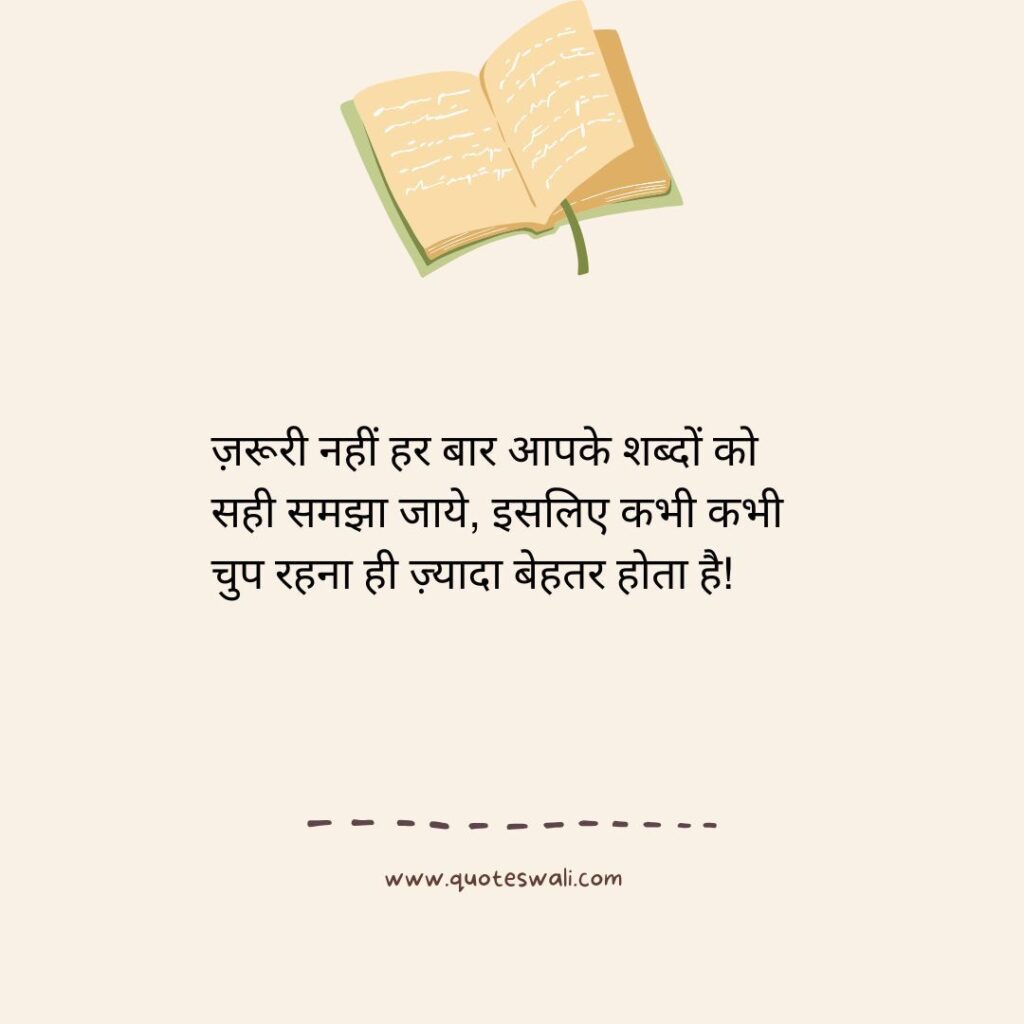 ज़रूरी नहीं हर बार आपके शब्दों को
सही समझा जाये, इसलिए कभी कभी
चुप रहना ही ज़्यादा बेहतर होता है!
www.quoteswali.com